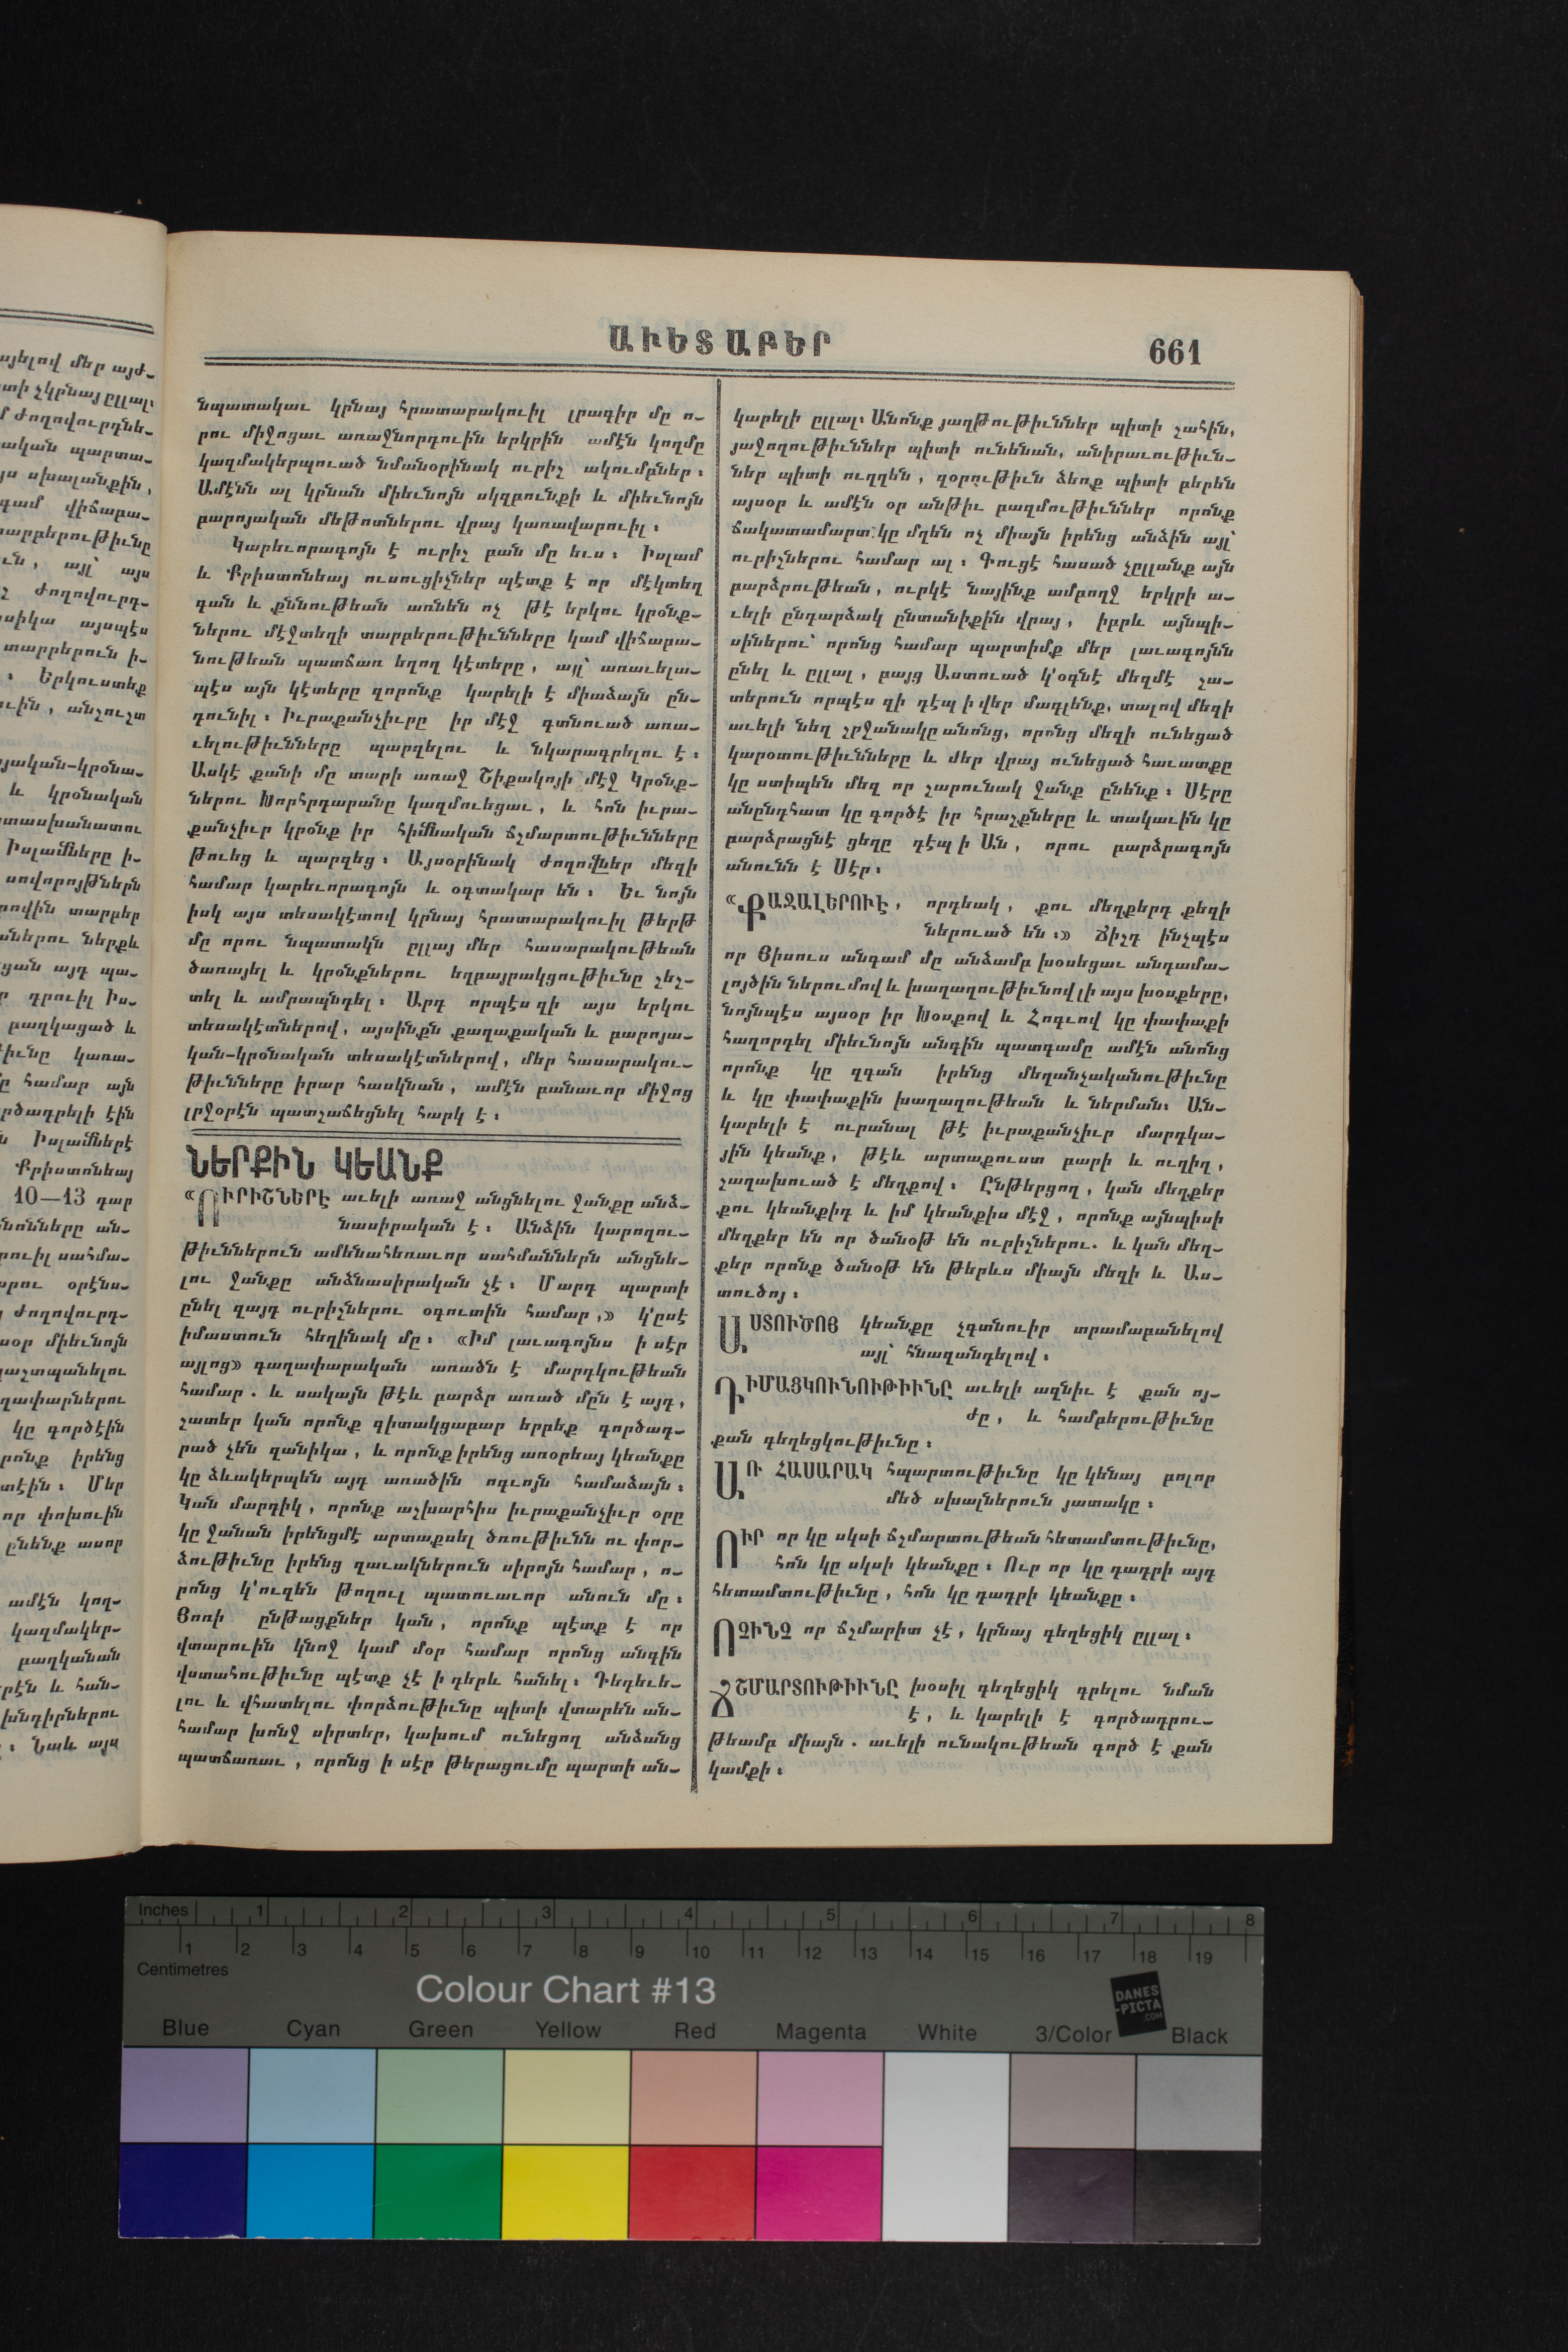 ԱՒԵՏԱԲԵՐ
661
նպատակաւ կրնայ հրատարակուիլ լրագիր մը ո-
րու միջոցաւ առաջնորդուին երկրին ամէն կողմը
կազմակերպուած նմանօրինակ ուրիշ ակումբներ։
Ամէնն ալ կրնան միեւնոյն սկզբունքի և միեւնոյն
բարոյական մեթոտներու վրայ կառավարուիլ։
Կարեւորագոյն է ուրիշ բան մը եւս։ Իսլամ
և Քրիստոնեայ ուսուցիչներ պէտք է որ մէկտեղ
գան և քննութեան առնեն ոչ թէ երկու կրօնք-
ներու մէջտեղի տարբերութիւնները կամ վիճաբա-
նութեան պատճառ եղող կէտերը, այլ՝ առաւելա-
պէս այն կէտերը զորոնք կարելի է միաձայն ըն-
դունիլ։ Իւրաքանչիւրը իր մէջ գտնուած առա-
ւելութիւնները պարզելու և նկարագրելու է։
Ասկէ քանի մը տարի առաջ Շիքակոյի մէջ Կրօնք-
ներու Խորհրդարանը կազմուեցաւ, և հոն իւրա-
քանչիւր կրօնք իր հիմնական ճշմարտութիւնները
թուեց և պարզեց։ Այսօրինակ ժողովներ մեզի
համար կարեւորագոյն և օգտակար են։ Եւ նոյն
իսկ այս տեսակէտով կրնայ հրատարակուիլ թերթ
մը որու նպատակն ըլլայ մեր հասարակութեան
ծառայել և կրօնքներու եղբայրակցութիւնը շեշ-
տել և ամրապնդել։ Արդ որպէս զի այս երկու
տեսակէտներով, այսինքն քաղաքական և բարոյա-
կան-կրօնական տեսակէտներով, մեր հասարակու-
թիւնները իրար հասկնան, ամէն բանաւոր միջոց
լրջօրէն պատշաճեցնել հարկ է։
ՆԵՐՔԻՆ ԿԵԱՆՔ
«ՈՒՐԻՇՆԵՐԷ աւելի առաջ անցնելու ջանքը անձ-
նասիրական է։ Անձին կարողու-
թիւններուն ամենահեռաւոր սահմաններն անցնե-
լու ջանքը անձնասիրական չէ։ Մարդ պարտի
ընել զայդ ուրիշներու օգուտին համար,» կ՚ըսէ
իմաստուն հեղինակ մը։ «Իմ լաւագոյնս ի սէր
այլոց» գաղափարական առածն է մարդկութեան
համար. և սակայն թէև բարձր առած մըն է այդ,
շատեր կան որոնք գիտակցաբար երբեք գործադ-
րած չեն զանիկա, և որոնք իրենց առօրեայ կեանքը
կը ձևակերպեն այդ առածին ոգւոյն համաձայն։
Կան մարդիկ, որոնք աշխարհիս իւրաքանչիւր օրը
կը ջանան իրենցմէ արտաքսել ծռութիւնն ու փոր-
ձութիւնը իրենց զաւակներուն սիրոյն համար, ո-
րոնց կ՚ուզեն թողուլ պատուաւոր անուն մը։
Յոռի ընթացքներ կան, որոնք պէտք է որ
վտարուին կնոջ կամ մօր համար որոնց անգին
վստահութիւնը պէտք չէ ի դերև հանել։ Դեդեւե-
լու և վհատելու փորձութիւնը պիտի վտարեն ան-
համար խոնջ սիրտեր, կախում ունեցող անձանց
պատճառաւ, որոնց ի սէր թերացումը պարտի ան-
կարելի ըլլալ։ Անոնք յաղթութիւններ պիտի շահին,
յաջողութիւններ պիտի ունենան, անիրաւութիւն-
ներ պիտի ուղղեն, զօրութիւն ձեռք պիտի բերեն
այսօր և ամէն օր անթիւ բազմութիւններ որոնք
ճակատամարտ կը մղեն ոչ միայն իրենց անձին այլ՝
ուրիշներու համար ալ։ Գուցէ հասած չըլլանք այն
բարձրութեան, ուրկէ նայինք ամբողջ երկրի ա-
ւելի ընդարձակ ընտանիքին վրայ, իբրև այնպի-
սիներու՝ որոնց համար պարտիմք մեր լաւագոյնն
ընել և ըլլալ, բայց Աստուած կ՚օգնէ մեզմէ շա-
տերուն որպէս զի դէպ ի վեր մագլենք, տալով մեզի
աւելի նեղ շրջանակը անոնց, որոնց մեզի ունեցած
կարօտութիւնները և մեր վրայ ունեցած հաւատքը
կը ստիպեն մեզ որ շարունակ ջանք ընենք։ Սէրը
անընդհատ կը գործէ իր հրաշքները և տակաւին կը
բարձրացնէ ցեղը դէպ ի Ան, որու բարձրագոյն
անունն է Սէր։
«ՔԱՋԱԼԵՐՈՒԷ, որդեակ, քու մեղքերդ քեզի
ներուած են։» Ճիշդ ինչպէս
որ Յիսուս անգամ մը անձամբ խօսեցաւ անդամա-
լոյծին ներումով և խաղաղութիւնով լի այս խօսքերը,
նոյնպէս այսօր իր Խօսքով և Հոգւով կը փափաքի
հաղորդել միեւնոյն անգին պատգամը ամէն անոնց
որոնք կը զգան իրենց մեղանչականութիւնը
և կը փափաքին խաղաղութեան և ներման։ Ան-
կարելի է ուրանալ թէ իւրաքանչիւր մարդկա-
յին կեանք, թէև արտաքուստ բարի և ուղիղ,
շաղախուած է մեղքով։ Ընթերցող, կան մեղքեր
քու կեանքիդ և իմ կեանքիս մէջ, որոնք այնպիսի
մեղքեր են որ ծանօթ են ուրիշներու. և կան մեղ-
քեր որոնք ծանօթ են թերևս միայն մեզի և Աս-
տուծոյ։
ԱՍՏՈՒԾՈՅ կեանքը չգտնուիր տրամաբանելով
այլ՝ հնազանդելով։
ԴԻՄԱՑԿՈՒՆՈՒԹԻՒՆԸ աւելի ազնիւ է քան ոյ-
ժը, և համբերութիւնը
քան գեղեցկութիւնը։
ԱՌ ՀԱՍԱՐԱԿ հպարտութիւնը կը կենայ բոլոր
մեծ սխալներուն յատակը։
ՈՒՐ որ կը սկսի ճշմարտութեան հետամտութիւնը,
հոն կը սկսի կեանքը։ Ուր որ կը դադրի այդ
հետամտութիւնը, հոն կը դադրի կեանքը։
ՈՉԻՆՉ որ ճշմարիտ չէ, կրնայ գեղեցիկ ըլլալ։
ՃՇՄԱՐՏՈՒԹԻՒՆԸ խօսիլ գեղեցիկ գրելու նման
է, և կարելի է գործադրու-
թեամբ միայն. աւելի ունակութեան գործ է քան
կամքի։
Inches 1 2 3 4 5 6 7 8
1 2 3 4 5 6 7 8 9 10 11 12 13 14 15 16 17 18 19
Centimetres
Colour Chart #13
DANES
-PICTA
.COM
Blue Cyan Green Yellow Red Magenta White 3/Color Black